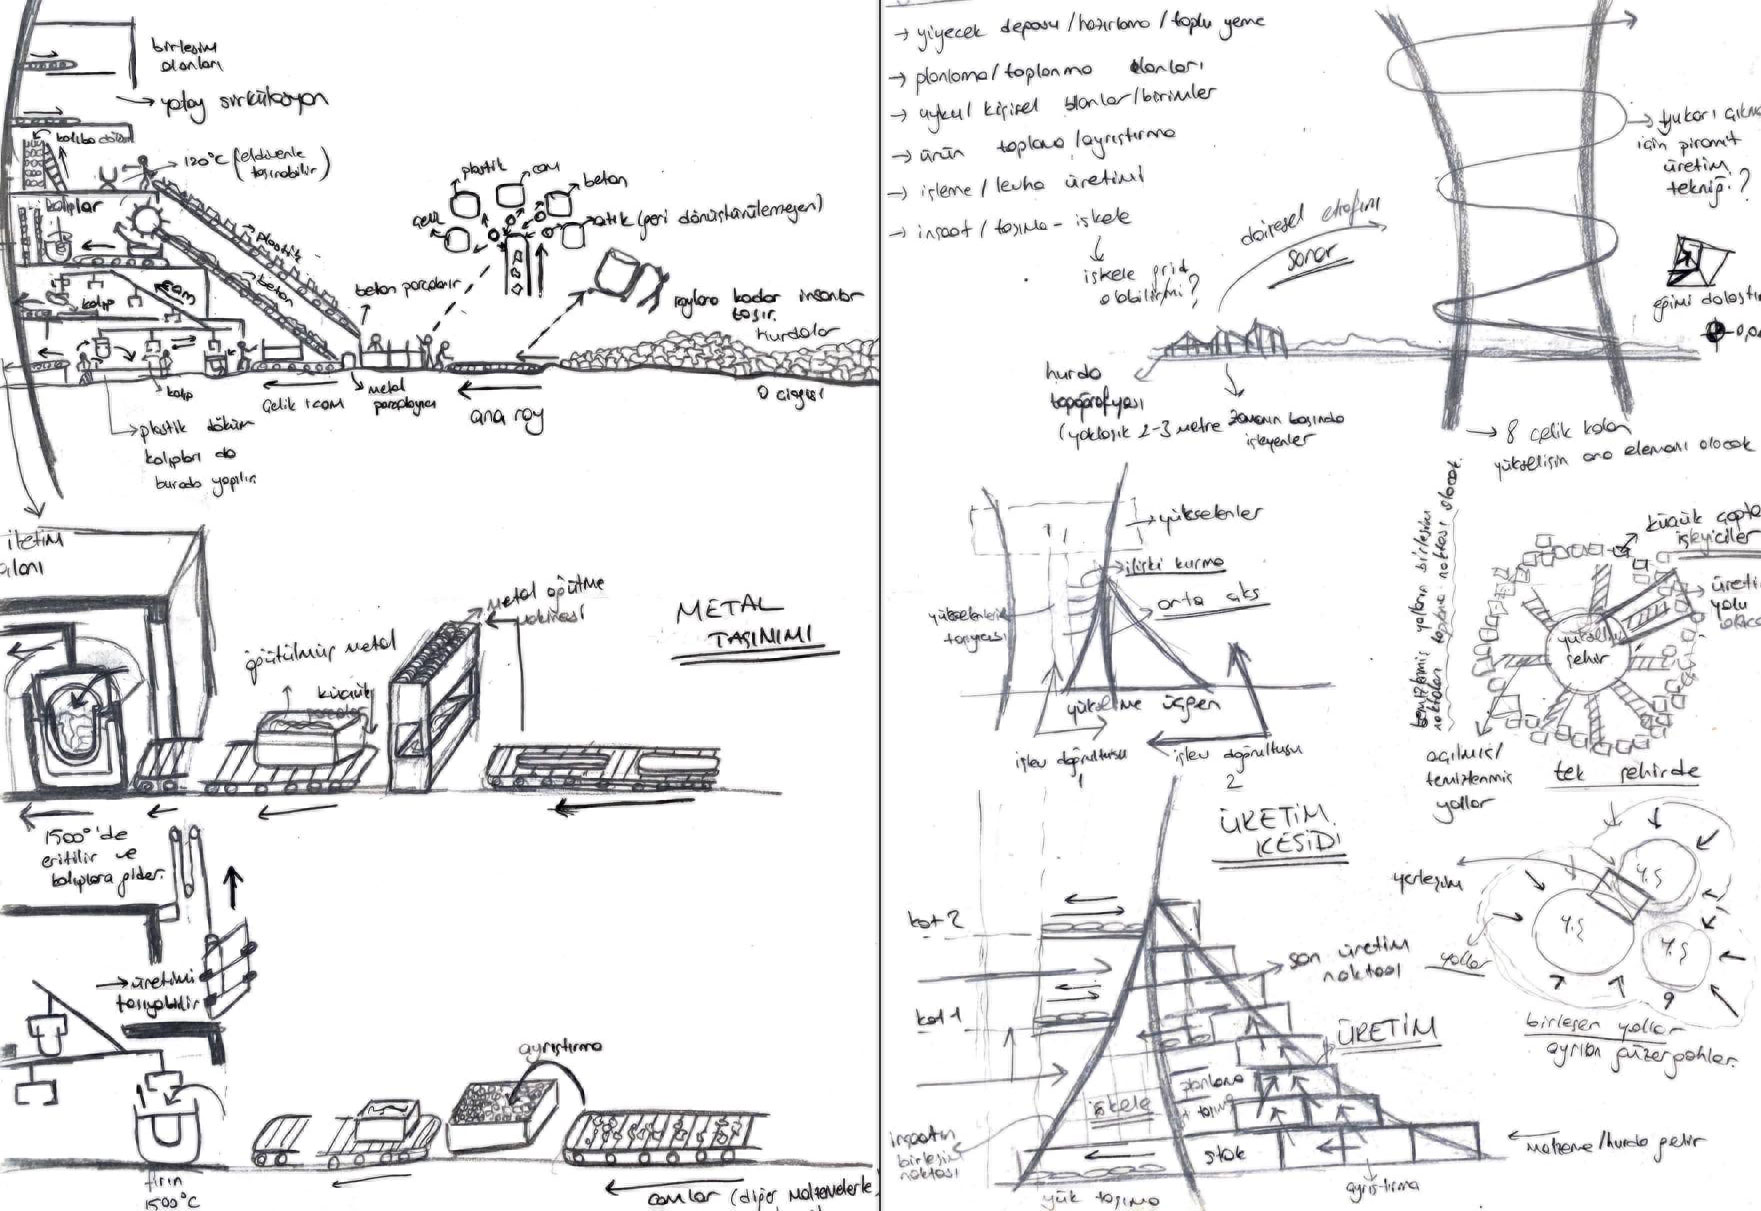 birleşim
alanları
→ yatay sirkülasyon
kalıba döküm
→ 120°C (eldivenle
taşınabilir)
kalıplar
plastik
beton
cam
kalıp
plastik
cam
beton
çelik
atık (geri dönüştürülemeyen)
beton parçalar
raylara kadar insanlar
taşır.
hurdalar
0 çizgisi
kalıp
çelik + cam
metal
parçalayıcı
ana ray
→ plastik döküm
kalıpları da
burada yapılır
iletim
alanı
metal öğütme
makinası
METAL
TAŞINIMI
öğütülmüş metal
küçük
parçalar
1500°'de
eritilir ve
kalıplara gider.
→ üretimi
taşıyabilir
ayrıştırma
fırın
1500°C
camlar (diğer malzemelerle
→ yiyecek deposu / hazırlama / toplu yeme
→ planlama / toplanma alanları
→ uyku / kişisel alanlar / birimler
→ ürün toplama / ayrıştırma
→ işleme / levha üretimi
→ inşaat / taşıma - iskele
iskele grid
olabilir mi?
dairesel etrafını
sarar
→ yukarı çıkma
için piramit
üretim
tekniği?
eğimi dolaştır
hurda
topoğrafyası
(yaklaşık 2-3 metre zamanın başında
işleyenler
→ 8 çelik kolon
yükselişin ana elemanı olacak
→ yükselenler
ilişki kurma
orta aks
yükselenlerin
taşıyıcısı
yükselme üçgen
işlev doğrultusu
1
işlev doğrultusu
2
temizlenmiş yolların birleşim
noktaları toplama noktası olacak.
küçük çapta
işleyiciler
üretim
yolu
yükselen
şehir
açılmış/
temizlenmiş
yollar
tek şehirde
ÜRETİM
KESİDİ
yerleşim
Y.Ş
Y.Ş
Y.Ş
yollar
birleşen yollar
ayrılan güzergahlar.
kot 2
→ son üretim
noktası
kot 1
ÜRETİM
planlama
+ taşıma
iskele
inşaatın
birleşim
noktası
stok
← malzeme/hurda gelir
yük taşıma
ayrıştırma